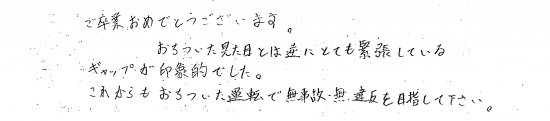 ご卒業おめでとうございます。
おちついた見た目とは逆にとても緊張している
ギャップが印象的でした。
これからもおちついた運転で無事故・無違反を目指して下さい。